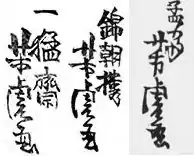 孟斎芳虎画
錦朝樓芳虎画
一猛齋芳虎画